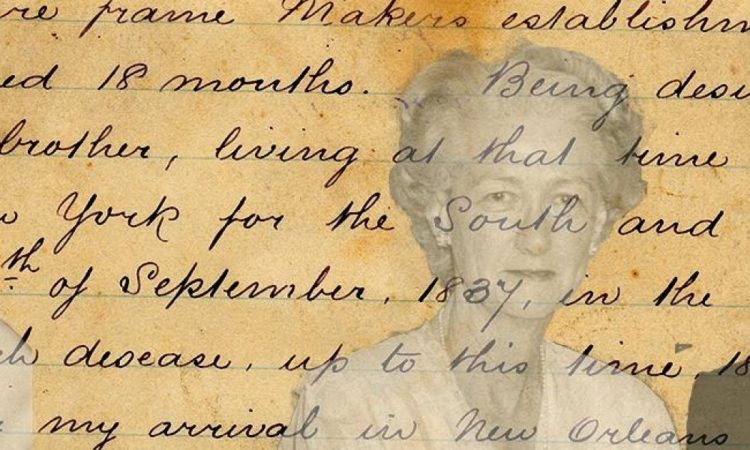 re frame Makers establishm
ed 18 months. Being desi
brother, living at that time
York for the South and
th of September, 1837, in the
ch desease, up to this time, 18
my arrival in New Orleans